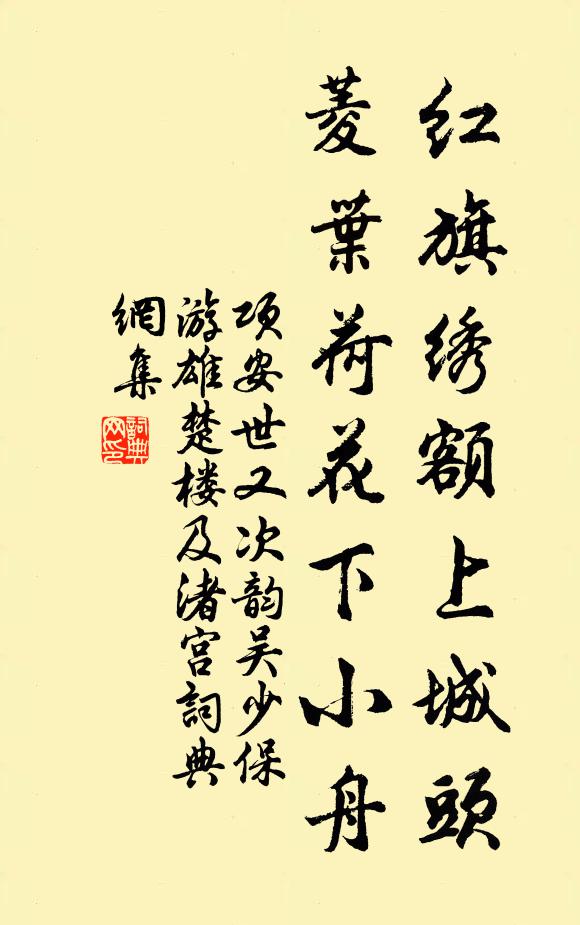 红旗绣额上城頭
菱葉荷花下小舟
项安世又次韵吴少保
游雄楚楼及渚宫詞典
網集
詞典网印